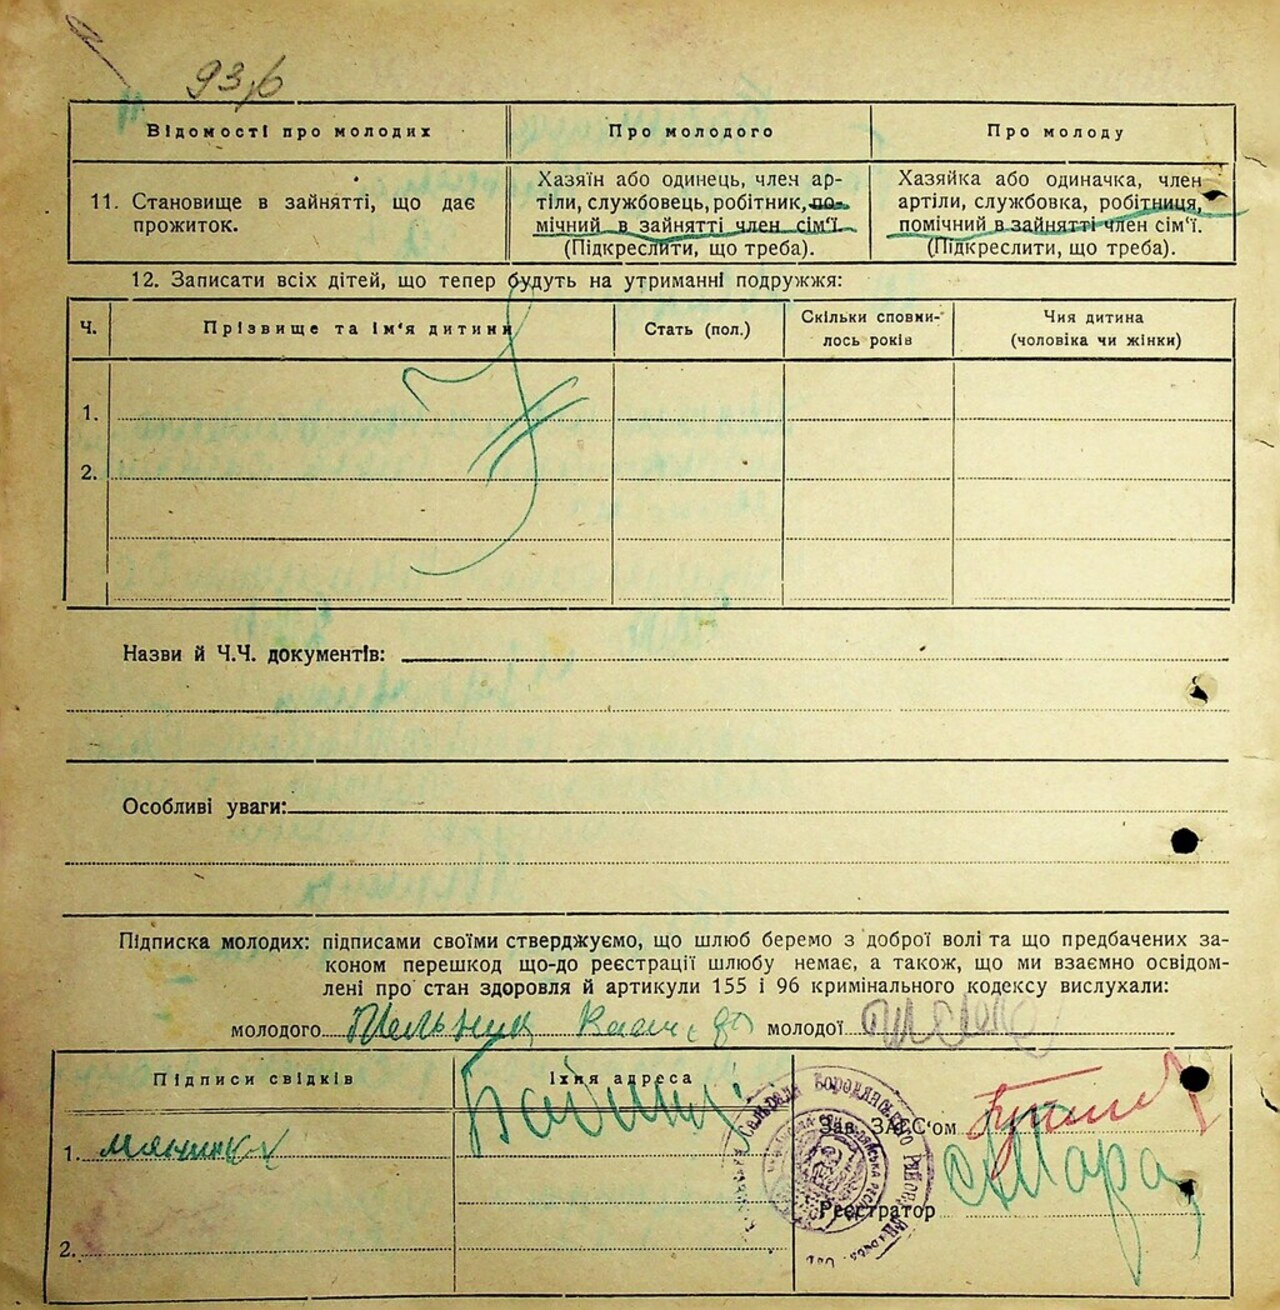 93
Відомості про молодих
Про молодого
Про молоду
11. Становище в зайнятті, що дає
прожиток.
Хазяїн або одинець, член ар-
тіли, службовець, робітник, по-
мічний в зайнятті член сім‘ї.
(Підкреслити, що треба).
Хазяйка або одиначка, член
артіли, службовка, робітниця,
помічний в зайнятті член сім‘ї.
(Підкреслити, що треба).
12. Записати всіх дітей, що тепер будуть на утриманні подружжя:
Ч.
Прізвище та ім‘я дитини
Стать (пол.)
Скільки сповни-
лось років
Чия дитина
(чоловіка чи жінки)
1.
2.
Назви й Ч.Ч. документів:
Особливі уваги:
Підписка молодих: підписами своїми стверджуємо, що шлюб беремо з доброї волі та що предбачених за-
коном перешкод що-до реєстрації шлюбу немає, а також, що ми взаємно освідом-
лені про стан здоровля й артикули 155 і 96 кримінального кодексу вислухали:
молодого Мельник молодої
Підписи свідків
Їхня адреса
1.
2.
Зав. ЗАСС‘ом
Реєстратор
Сельрада Бородянського Район